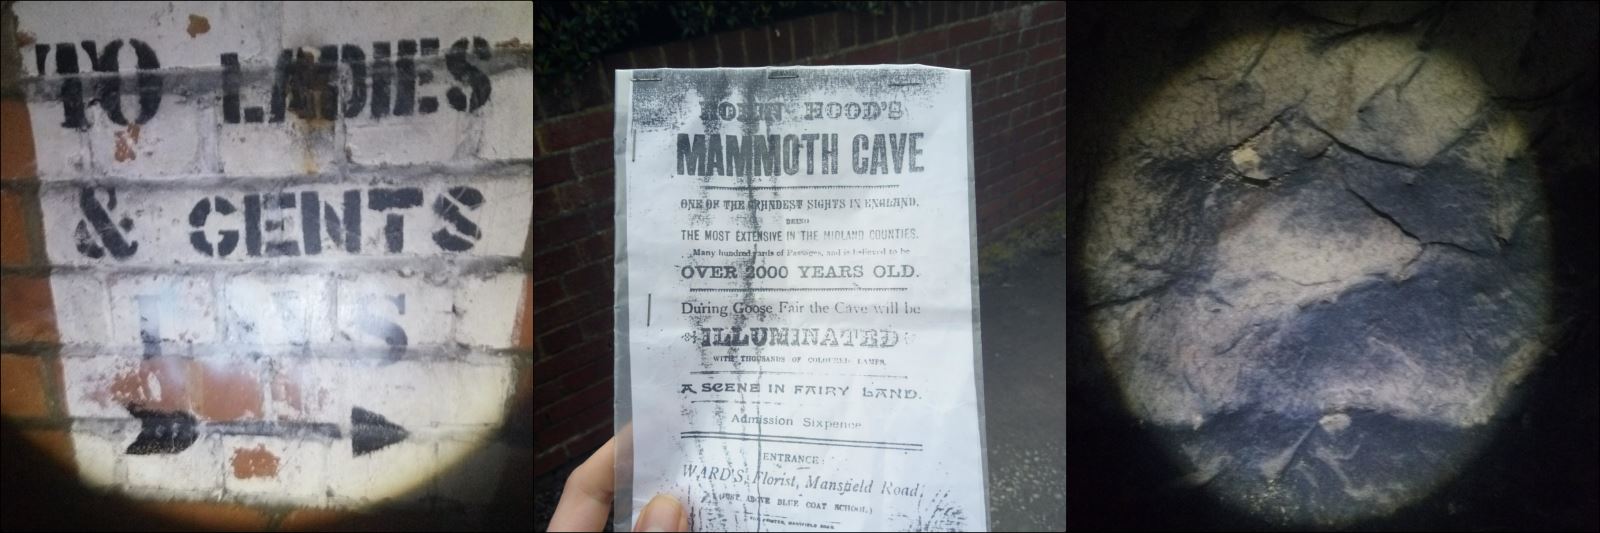 TO LADIES
& GENTS
ROBIN HOOD'S
MAMMOTH CAVE
ONE OF THE GRANDEST SIGHTS IN ENGLAND,
BEING
THE MOST EXTENSIVE IN THE MIDLAND COUNTIES.
Many hundred yards of Passages, and is believed to be
OVER 2000 YEARS OLD.
During Goose Fair the Cave will be
ILLUMINATED
WITH THOUSANDS OF COLOURED LAMPS.
A SCENE IN FAIRY LAND.
Admission Sixpence
ENTRANCE:
WARD'S, Florist, Mansfield Road,
(JUST ABOVE BLUE COAT SCHOOL)